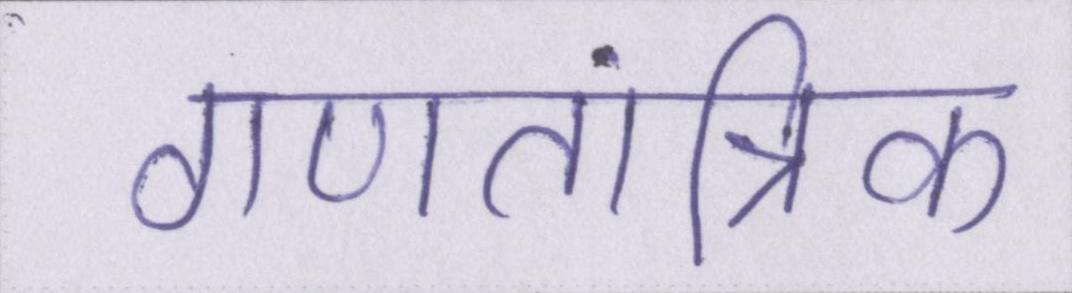 गणतांत्रिक